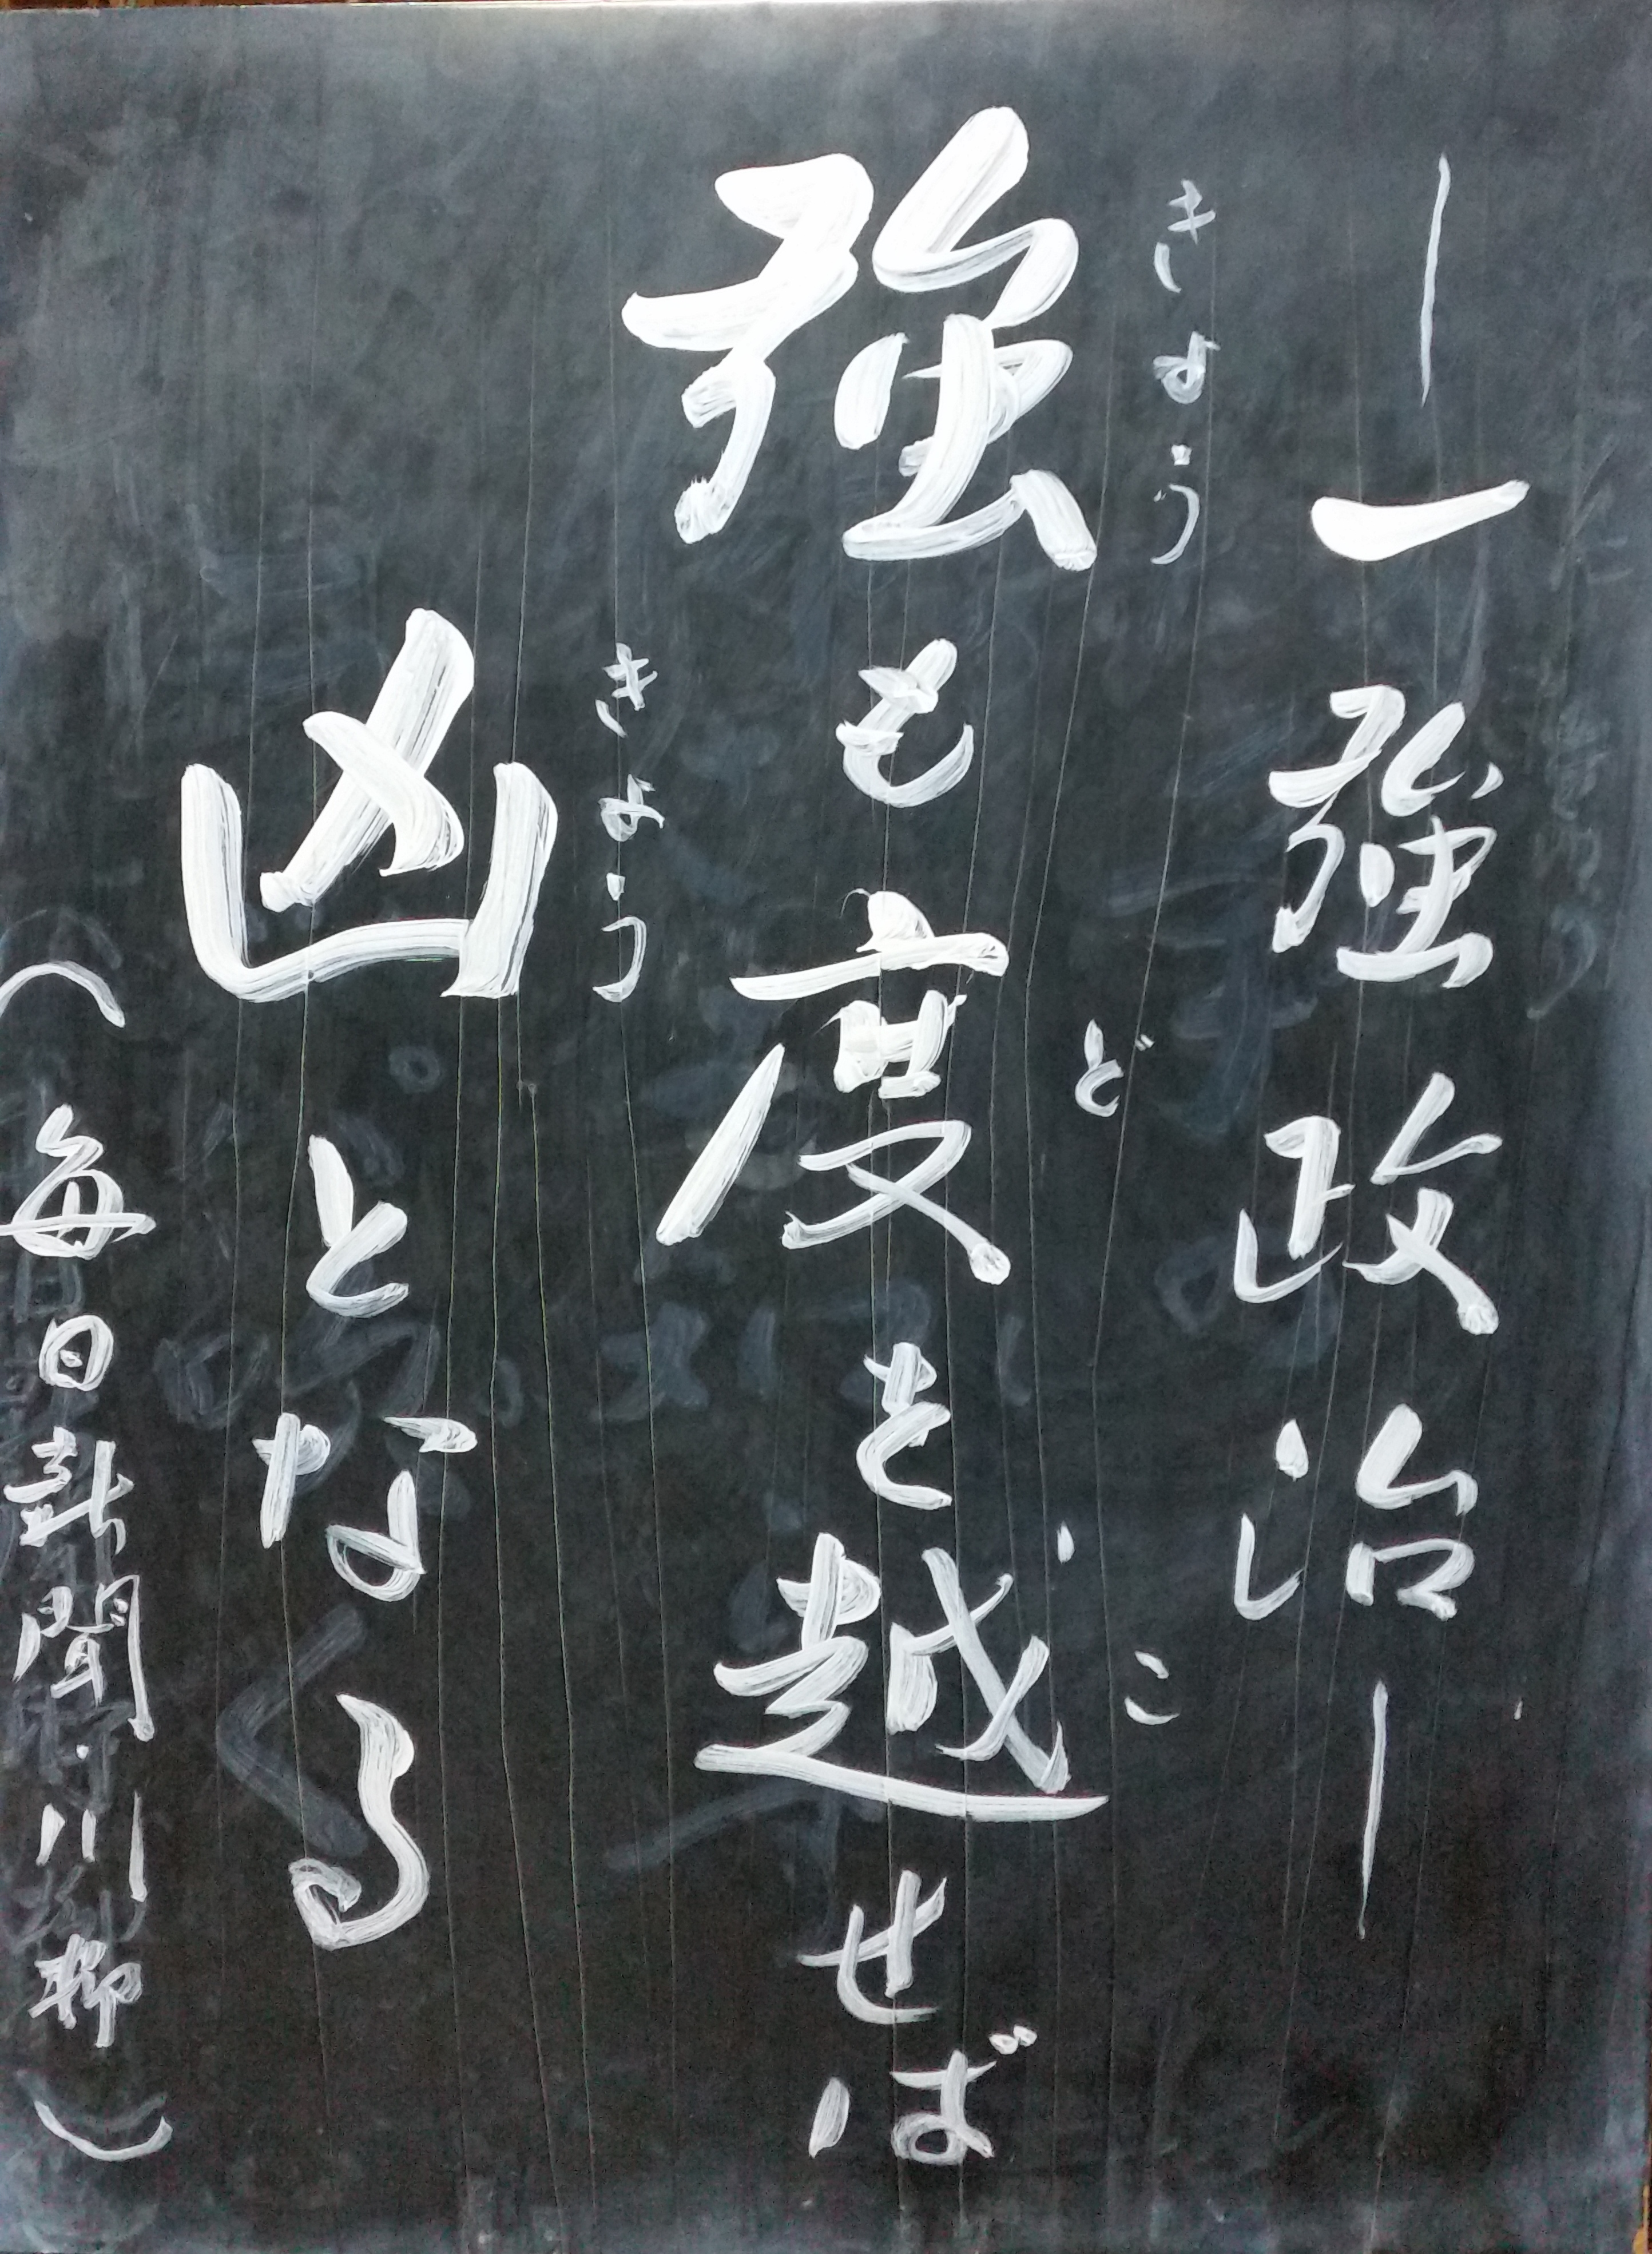 ―一強政治―
強も度を越せば
凶となる
(毎日新聞・川柳)
きょう
ど
こ
きょう